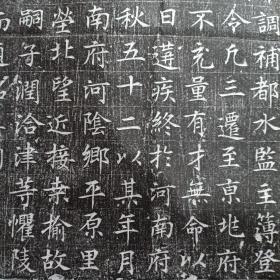 調補都水監主簿登
令凡三遷至京兆府
不充量有才無命以
日遘疾終於河南府
秋五十二以其年月
南府河陰鄉平原里
塋北望近接桑榆故
嗣子潤洽津等懼陵